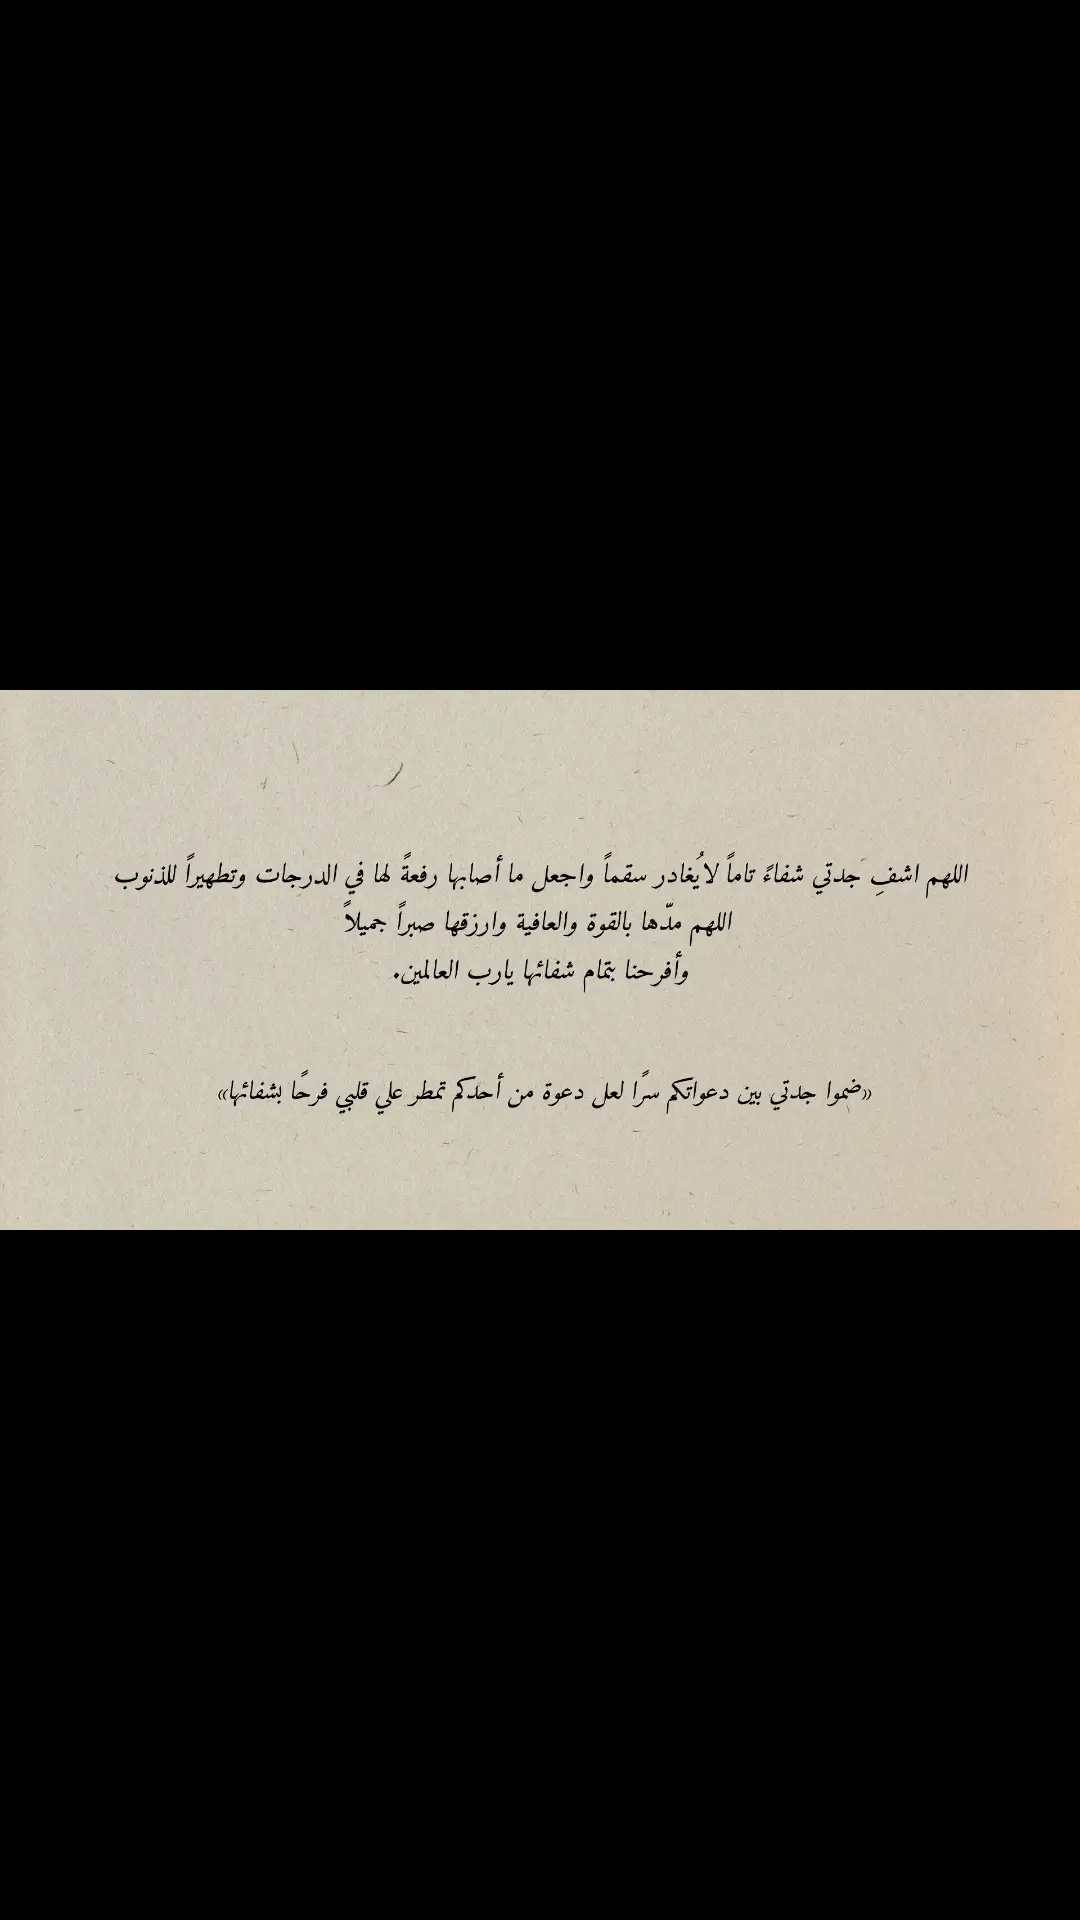 اللهم اشفِ جَدتي شفاءً تاماً لايُغادر سقماً واجعل ما أصابها رفعةً لها في الدرجات وتطهيراً للذنوب
اللهم مدّها بالقوة والعافية وارزقها صبراً جميلاً
وأفرحنا بتمام شفائها يارب العالمين.
«ضموا جدتي بين دعواتكم سرًا لعل دعوة من أحدكم تمطر علي قلبي فرحًا بشفائها»